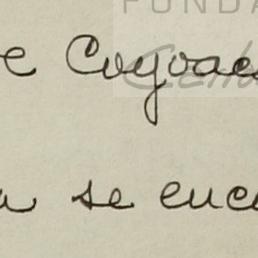 FUNDA
e Coyoac
a se enc